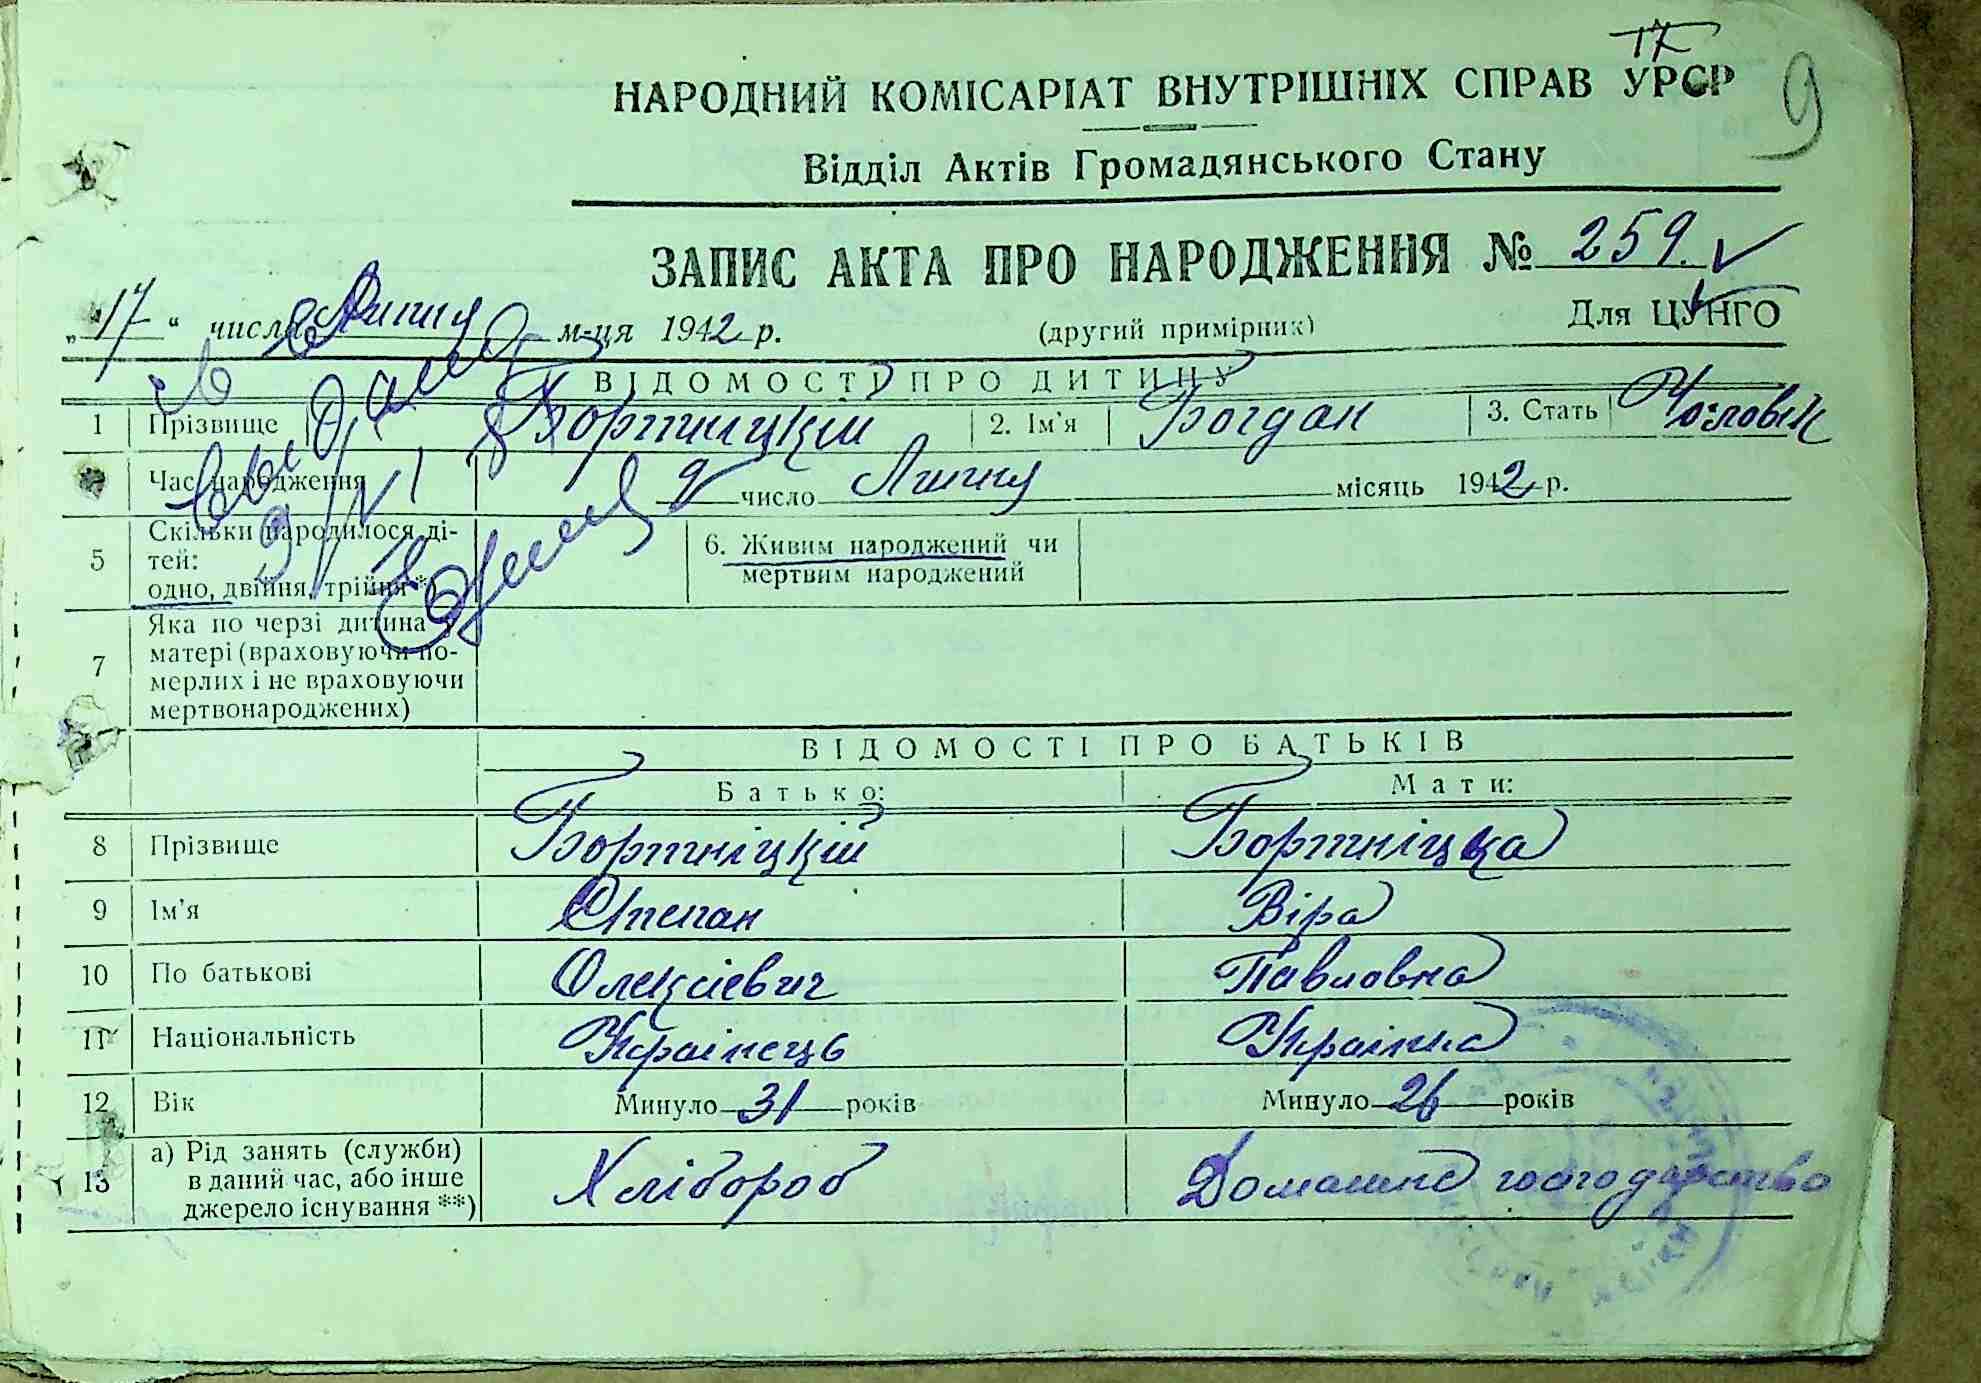 ТҒ
НАРОДНИЙ КОМІСАРІАТ ВНУТРІШНІХ СПРАВ УРСР
9
Відділ Актів Громадянського Стану
ЗАПИС АКТА ПРО НАРОДЖЕННЯ № 259.
„17“ числа Липня м-ця 1942 р. (другий примірник) Для ЦУНГО
ВІДОМОСТІ ПРО ДИТИНУ
1 Прізвище Бортніцкій 2. Ім'я Богдан 3. Стать Чоловік
Час народження 9 число Липня місяць 1942 р.
5 Скільки народилося ді-
тей:
одно, двійня, трійня *)
6. Живим народжений чи
мертвим народжений
7 Яка по черзі дитина у
матері (враховуючи по-
мерлих і не враховуючи
мертвонароджених)
ВІДОМОСТІ ПРО БАТЬКІВ
Батько: Мати:
8 Прізвище Бортніцкій Бортніцка
9 Ім'я Степан Віра
10 По батькові Олексієвич Павловна
11 Національність Українець Українка
12 Вік Минуло 31 років Минуло 26 років
13 а) Рід занять (служби)
в даний час, або інше
джерело існування **)
Хлібороб Домашнє господарство